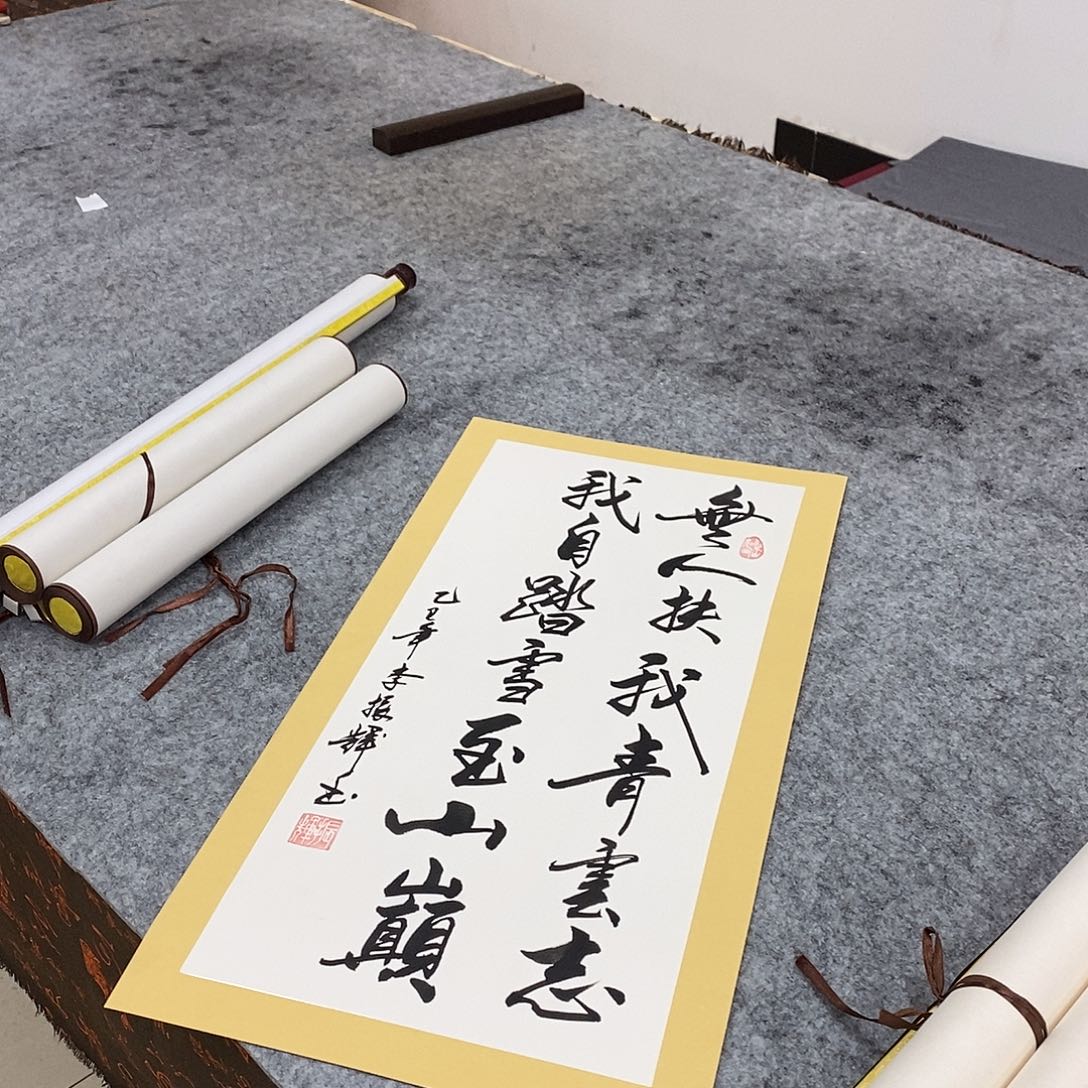 無人扶我青雲志
我自踏雪至山巔
乙巳年李振輝书